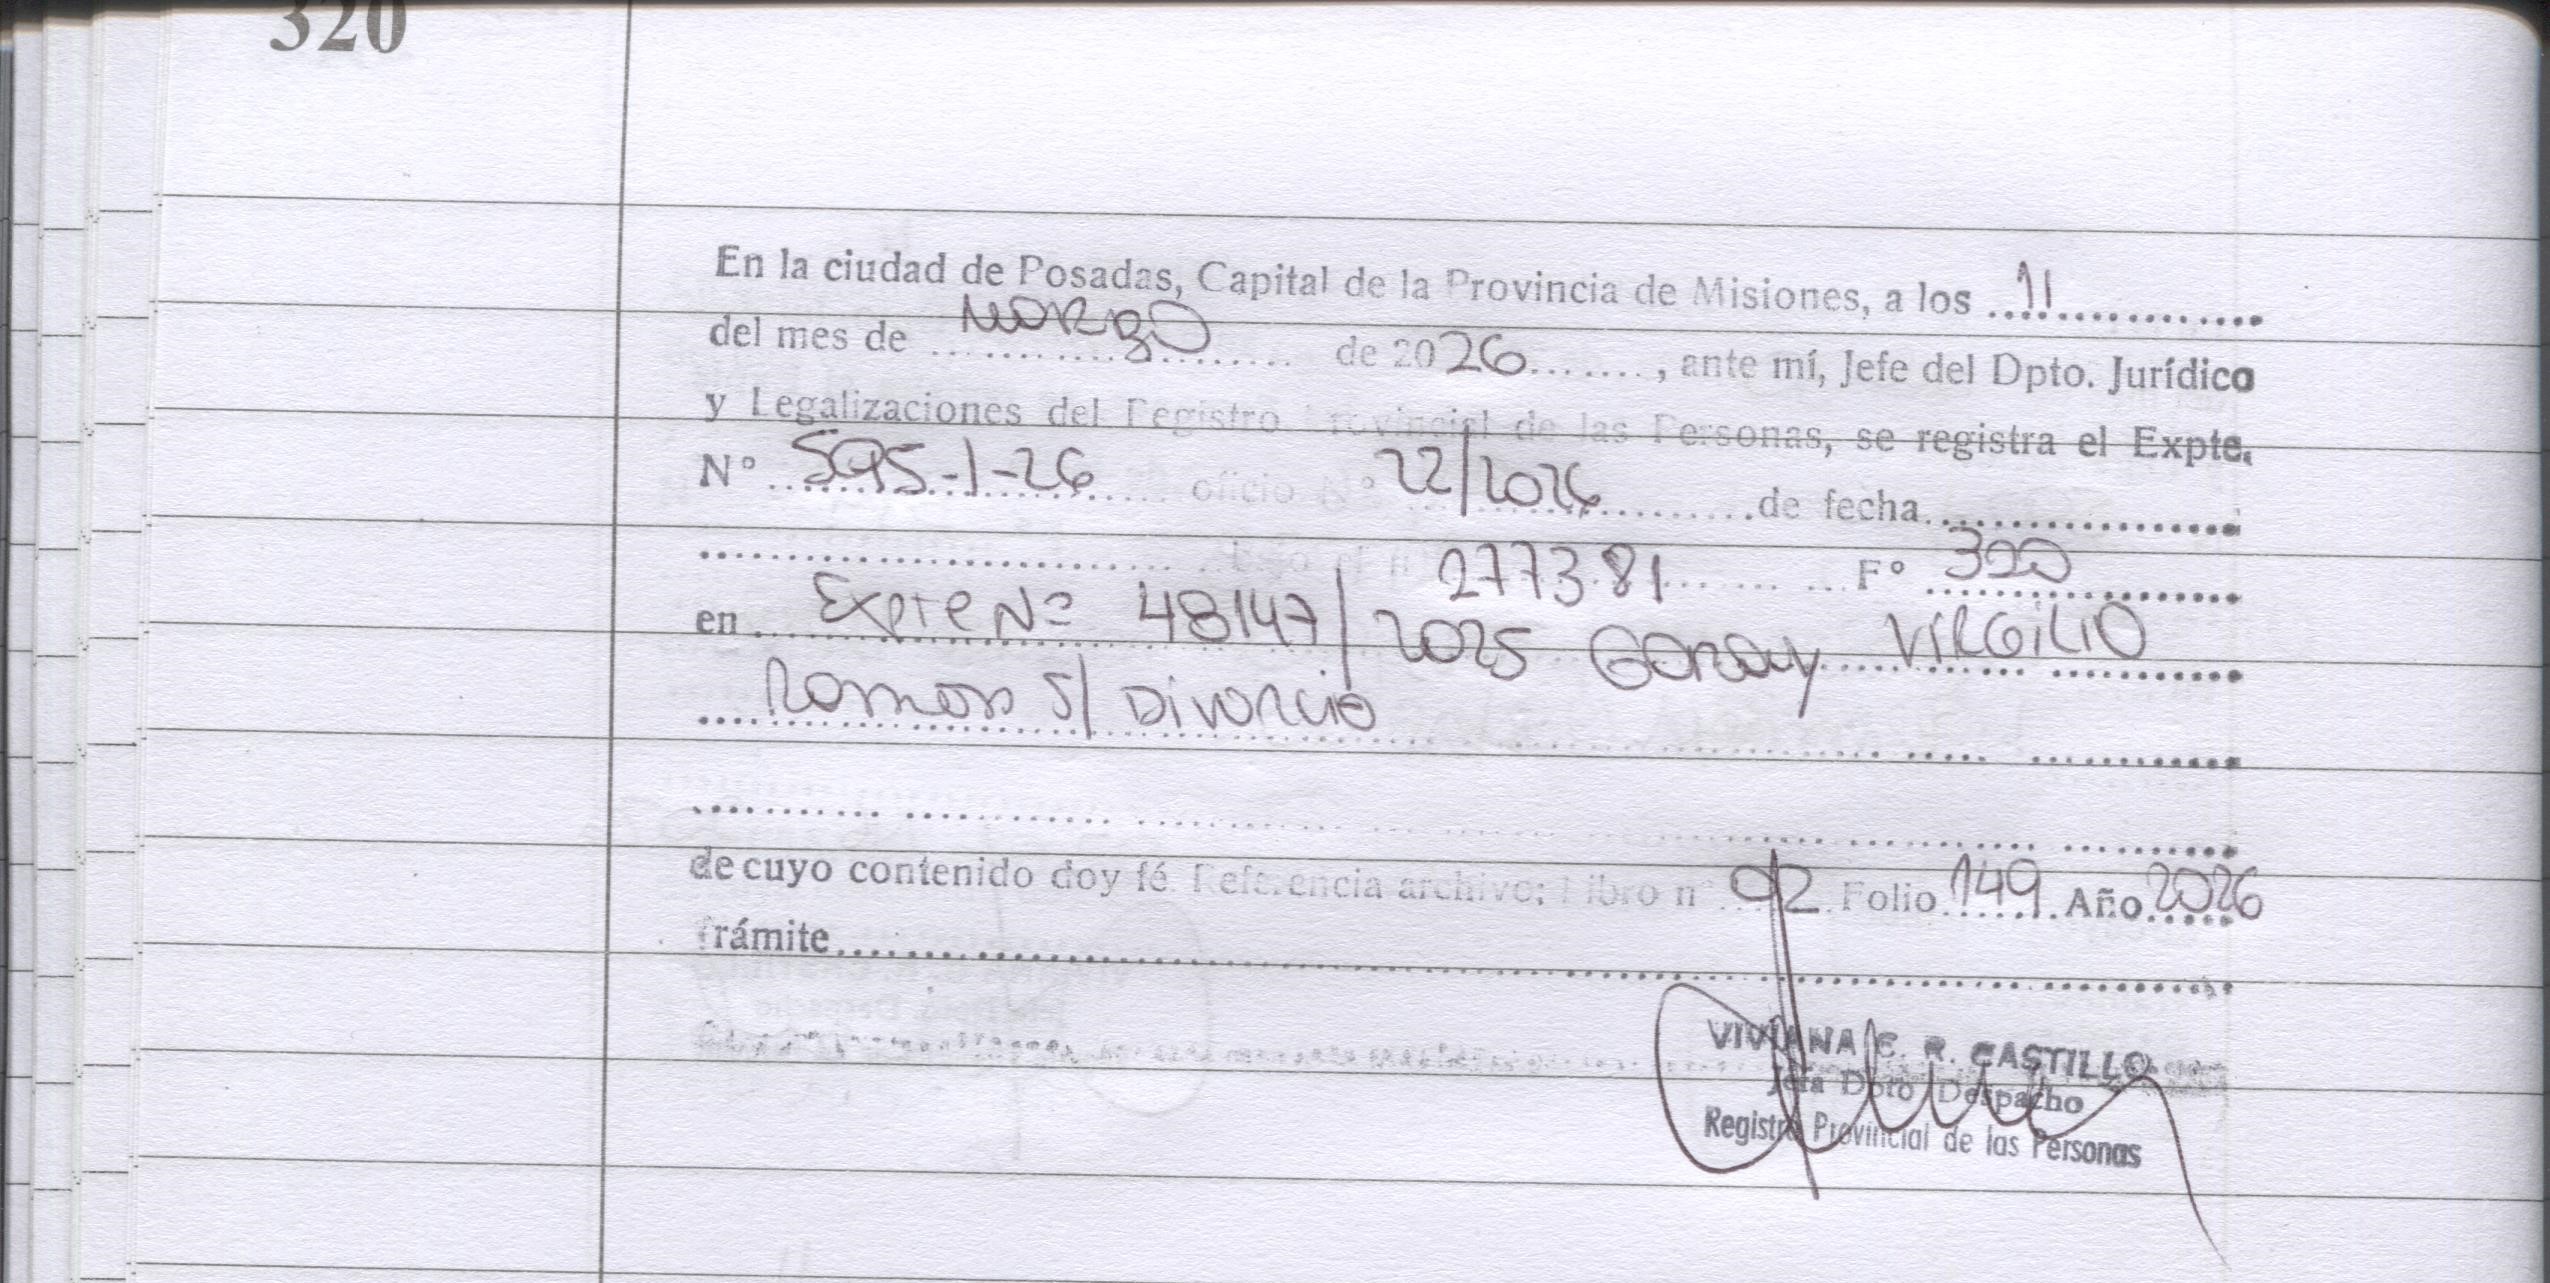 320
En la ciudad de Posadas, Capital de la Provincia de Misiones, a los 11
del mes de Marzo de 2026, ante mí, Jefe del Dpto. Jurídico
y Legalizaciones del Registro Provincial de las Personas, se registra el Expte.
N° 595-1-26 oficio N° 22/2026 de fecha
bajo el n° 277381 F° 320
en Expte N= 48147/2025 Garay Virgilio
Ramon S/ Divorcio
de cuyo contenido doy fé Referencia archivo: Libro n° 02 Folio 149 Año 2026
Trámite
VIVIANA C. R. CASTILLO
Jefa Dpto Despacho
Registro Provincial de las Personas